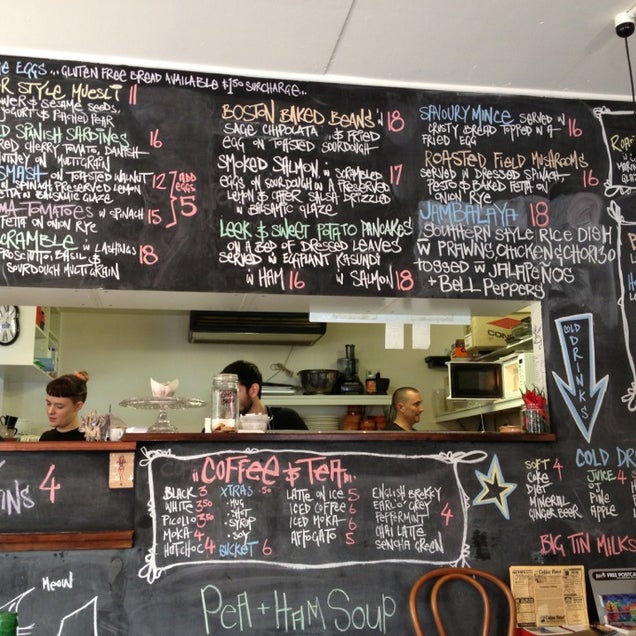 EGGS ... GLUTEN FREE BREAD AVAILABLE $1.50 SURCHARGE ...
STYLE MUESLI 11
& SESAME SEEDS.
YOGURT & POACHED PEAR
SPANISH SARDINES 16
CHERRY TOMATO, DANISH
ON MULTIGRAIN
SMASH ON TOASTED WALNUT 12 ADD EGGS 5
W SPINACH PRESERVED LEMON
BALSAMIC GLAZE
TOMATOES W SPINACH 15
FETTA ON ONION RYE
W LASHINGS 18
PROSCIUTTO, BASIL &
SOURDOUGH MULTIGRAIN
BOSTON BAKED BEANS W 18
SAGE CHIPOLATA & FRIED
EGG ON TOASTED SOURDOUGH
SMOKED SALMON W SCRAMBLED 17
EGGS ON SOURDOUGH W A PRESERVED
LEMON & CAPER SALSA DRIZZLED
W BALSAMIC GLAZE
LEEK & SWEET POTATO PANCAKES
ON A BED OF DRESSED LEAVES
SERVED W EGGPLANT KASUNDI
W HAM 16 W SALMON 18
SAVOURY MINCE SERVED W 16
CRUSTY BREAD TOPPED W A
FRIED EGG
ROASTED FIELD MUSHROOMS
SERVED W DRESSED SPINACH, 16
PESTO & BAKED FETTA ON
ONION RYE
JAMBALAYA 18
SOUTHERN STYLE RICE DISH
W PRAWNS CHICKEN & CHORIZO
TOSSED W JALAPEÑOS
+ BELL PEPPERS
COLD DRINKS
4
COFFEE & TEA
BLACK 3
WHITE 3.50
PICOLLO 3.50
MOKA 4
HOTCHOC 4
XTRAS .50
. MUG
. SHOT
. SYRUP
. SOY
BUCKET 6
LATTE ON ICE 5
ICED COFFEE 6
ICED MOKA 6
AFFOGATO 5
ENGLISH BREKKY
EARL GREY
PEPPERMINT 4
CHAI LATTE
SENCHA GREEN
COLD
SOFT 4
COKE
DIET
MINERAL
GINGER BEER
JUICE 4
OJ
PINE
APPLE
BIG TIN MILKS
MEOW
PEA + HAM SOUP
FREE POSTCA